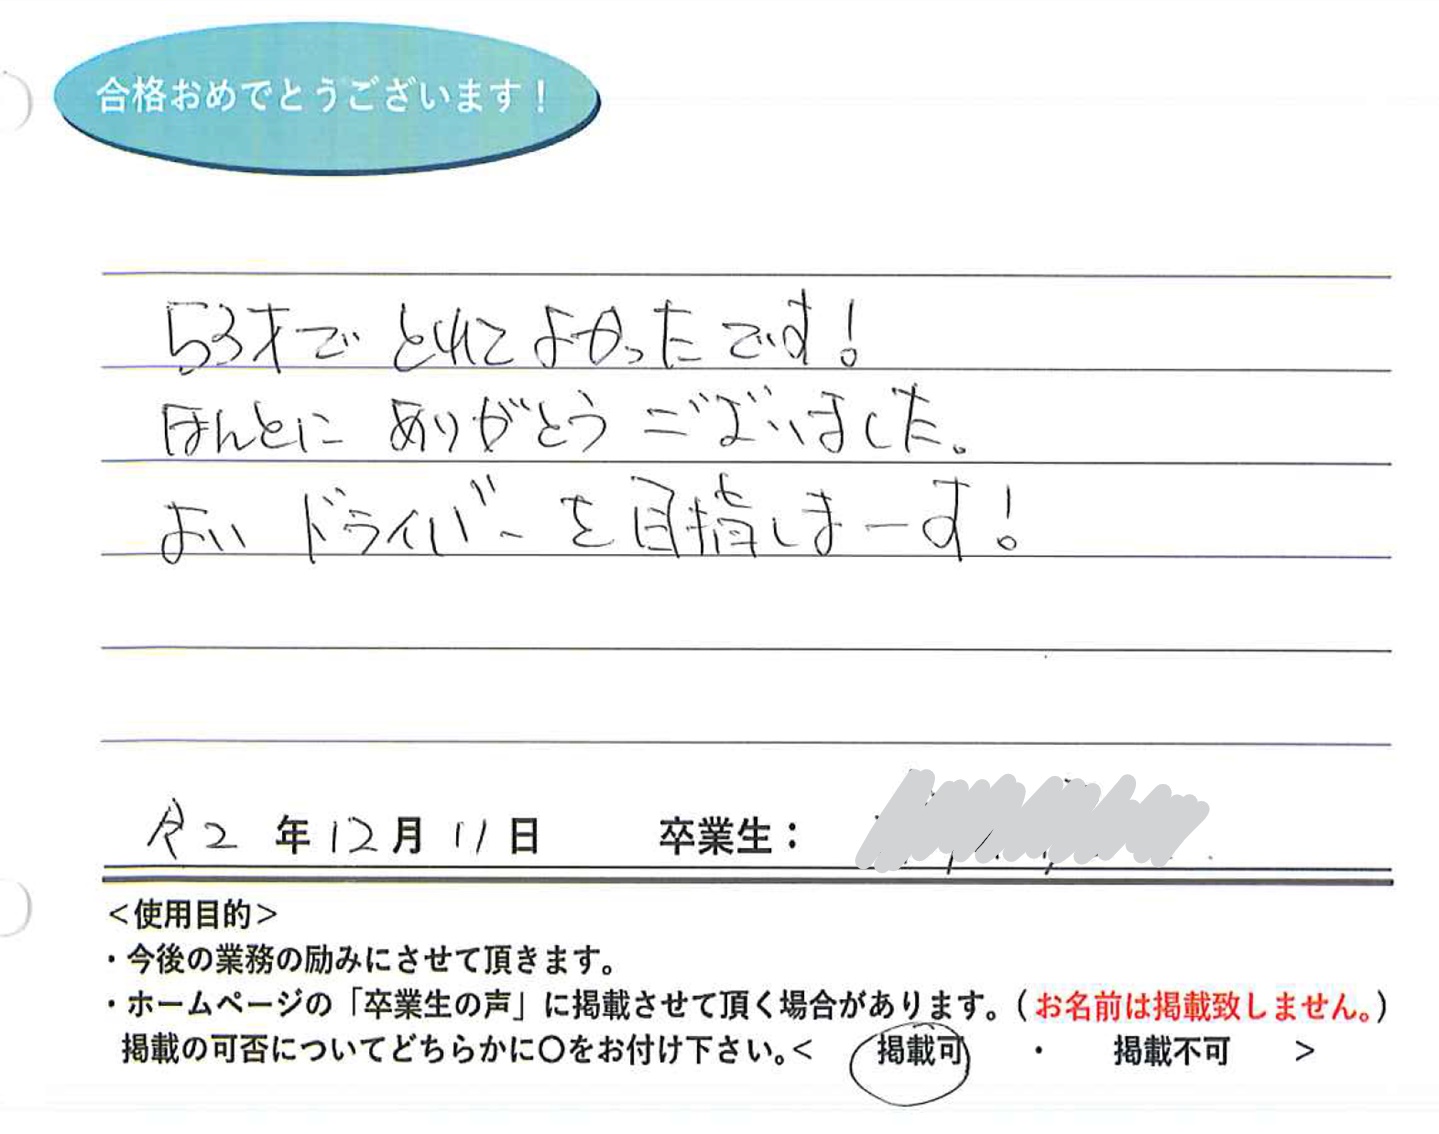 合格おめでとうございます！
53才で とれて よかったです！
ほんとに ありがとう ございました。
よい ドライバーを目指しまーす！
令2 年 12 月 11 日 卒業生：
＜使用目的＞
・今後の業務の励みにさせて頂きます。
・ホームページの「卒業生の声」に掲載させて頂く場合があります。（お名前は掲載致しません。）
掲載の可否についてどちらかに〇をお付け下さい。＜ 掲載可 ・ 掲載不可 ＞